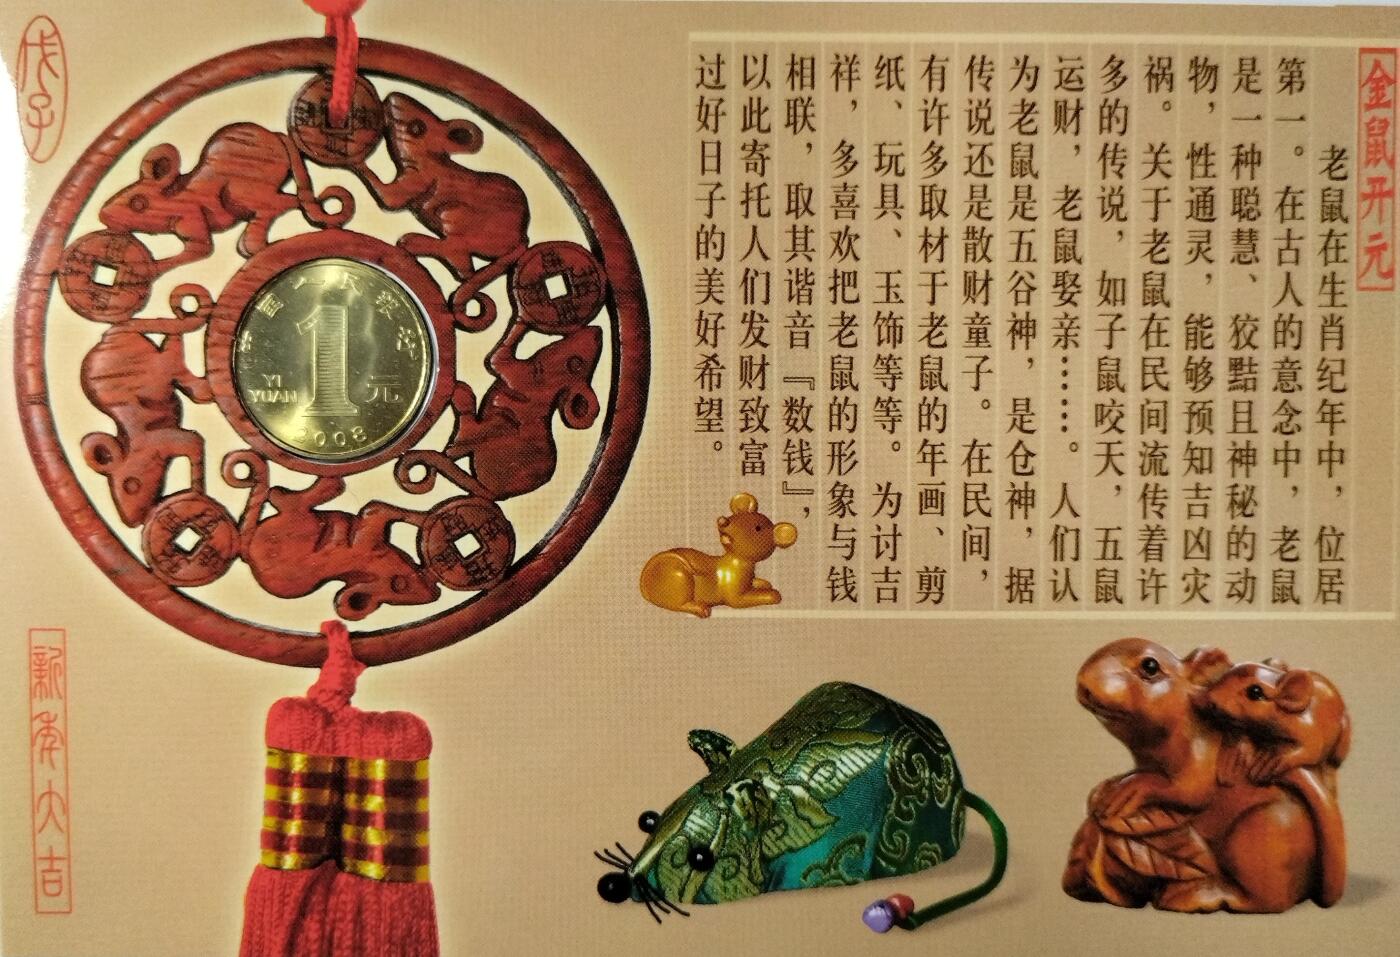 金鼠开元
老鼠在生肖纪年中，位居
第一。在古人的意念中，老鼠
是一种聪慧、狡黠且神秘的动
物，性通灵，能够预知吉凶灾
祸。关于老鼠在民间流传着许
多的传说，如子鼠咬天，五鼠
运财，老鼠娶亲……。人们认
为老鼠是五谷神，是仓神，据
传说还是散财童子。在民间，
有许多取材于老鼠的年画、剪
纸、玩具、玉饰等等。为讨吉
祥，多喜欢把老鼠的形象与钱
相联，取其谐音『数钱』，
以此寄托人们发财致富
过好日子的美好希望。
中国人民银行
1
元
YI
YUAN
2008
戊子
新年大吉